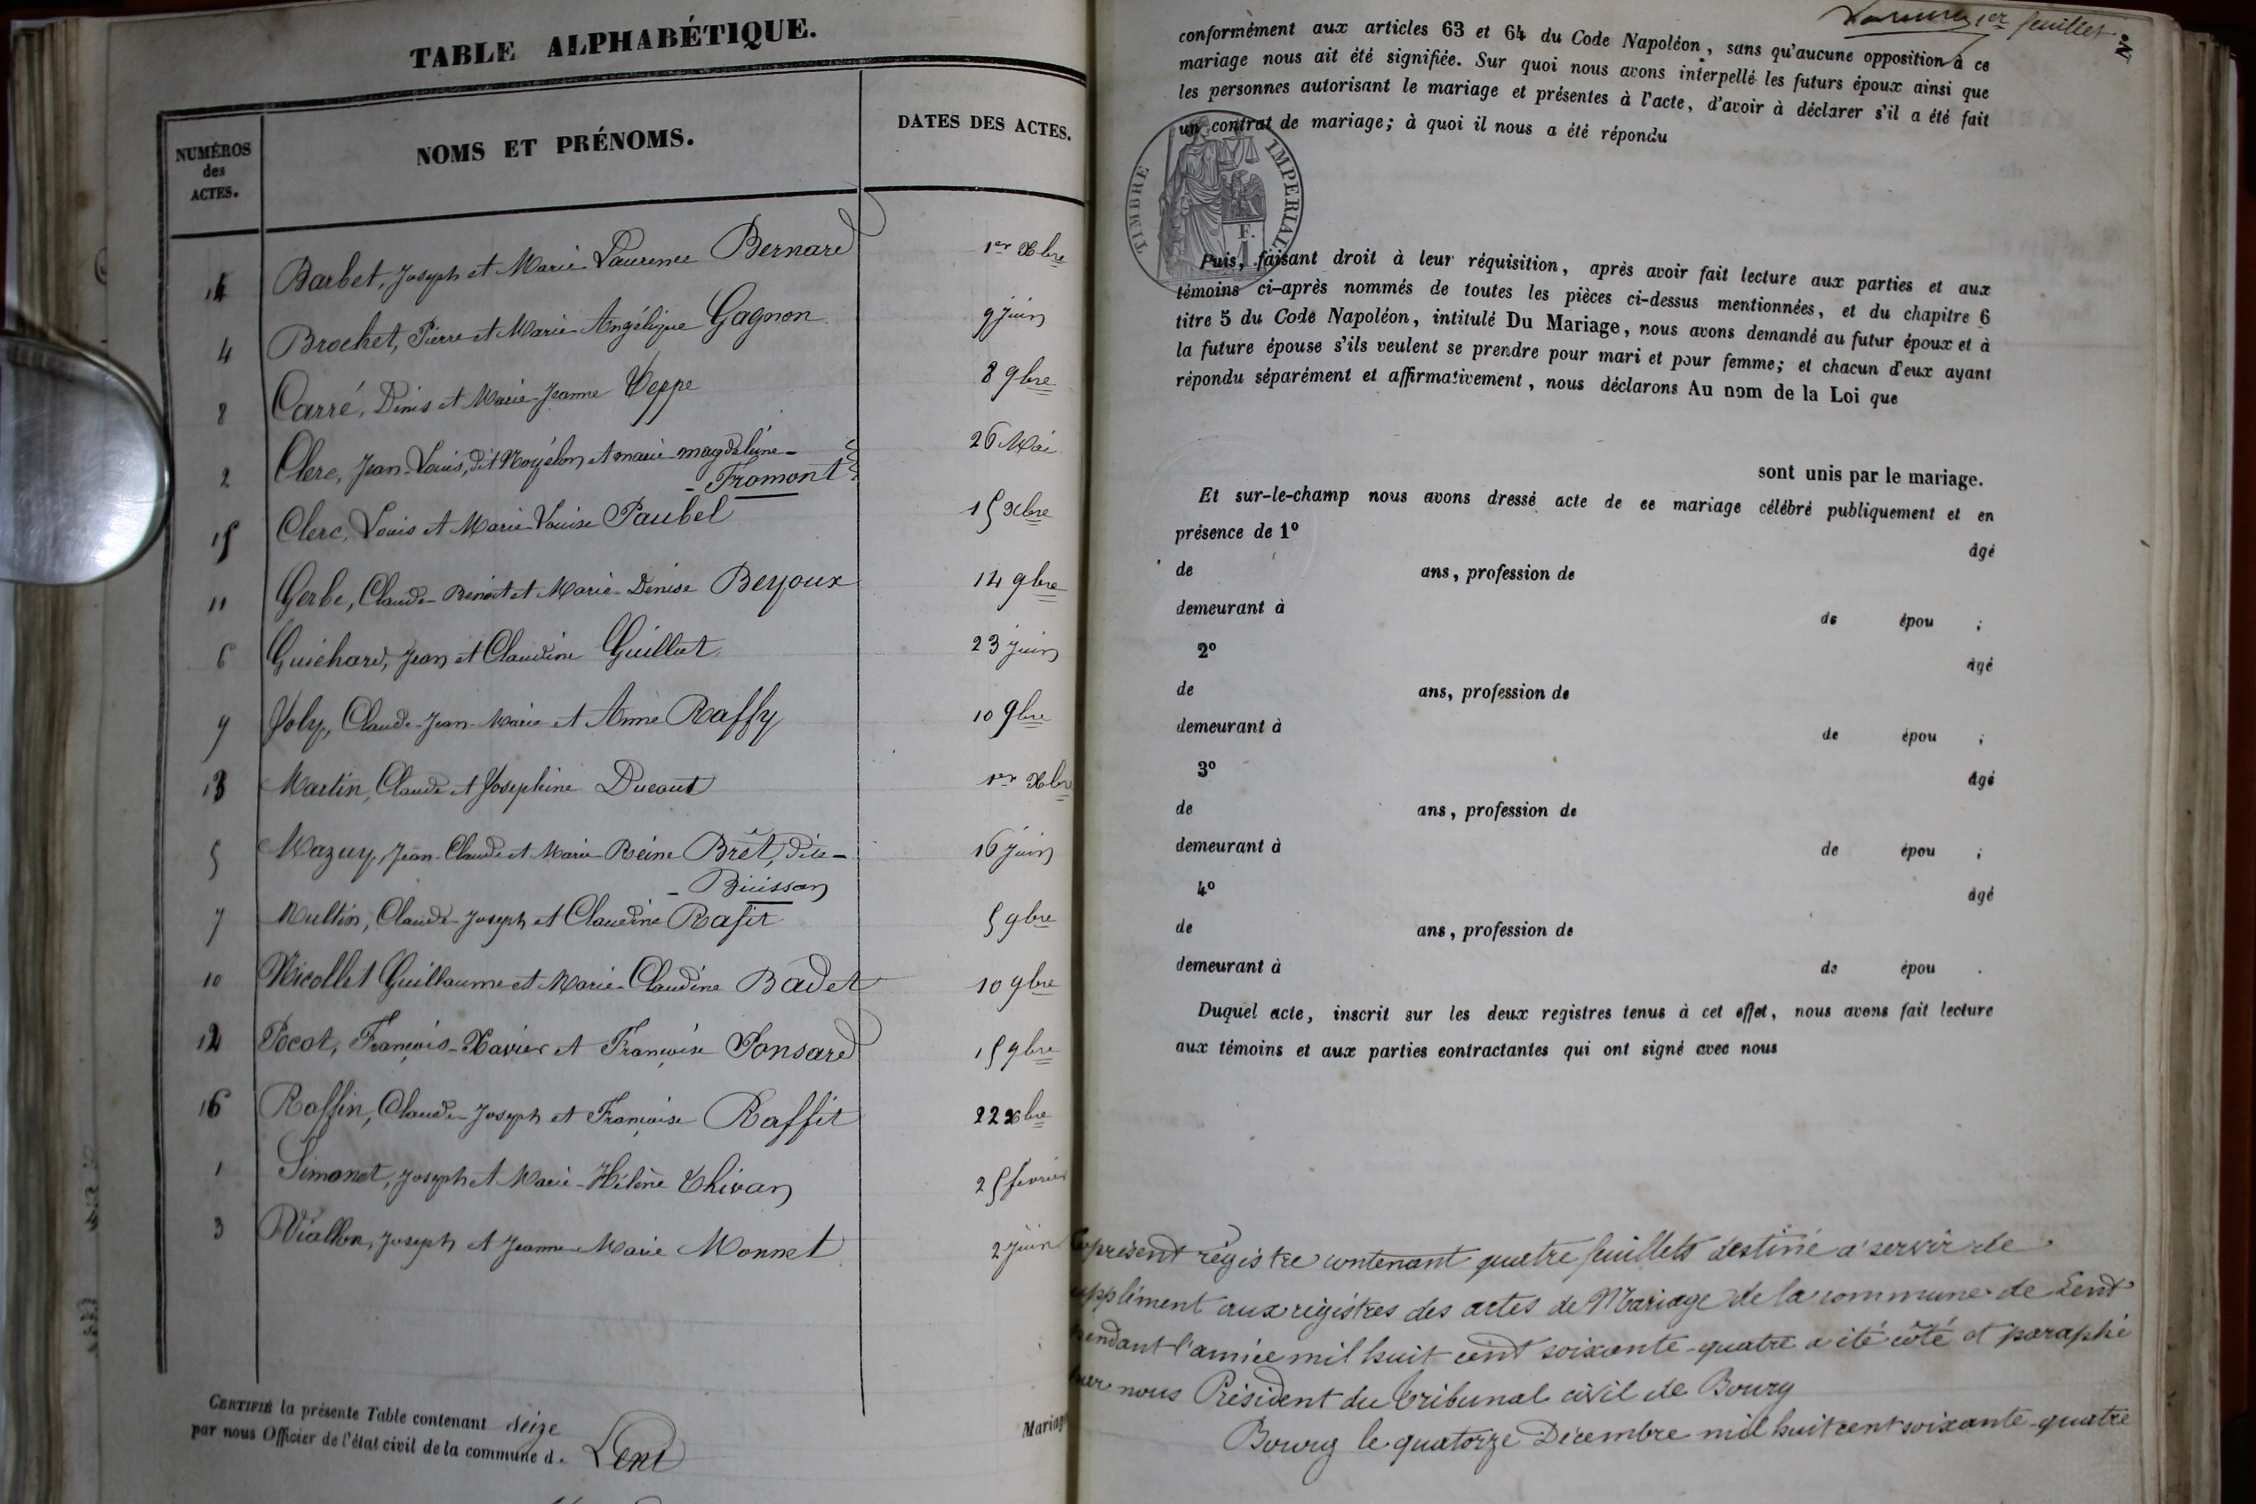 TABLE ALPHABÉTIQUE.
NUMÉROS
des
ACTES.
NOMS ET PRÉNOMS.
DATES DES ACTES.
14 Barbet, Joseph et Marie Laurence Bernard 1er Xbre
4 Brochet, Pierre et Marie-Angélique Gagnon 9 juin
8 Carré, Dénis et Marie-Jeanne Veppe 8 9bre
2 Clerc, Jean-Louis, dit Noyélon et marie magdeleine- 26 Mai
- Fromont
15 Clerc, Louis et Marie-Louise Paubel 15 Xbre
11 Gerbe, Claude-Benoit et Marie-Denise Beyoux 14 9bre
6 Guichard, Jean et Claudine Guillot 23 juin
9 Joly, Claude-Jean-Marie et Anne Raffy 10 9bre
13 Martin, Claude et Joséphine Ducout 1er Xbre
5 Mazuy, Jean-Claude et Marie-Reine Brêt, dite- 16 juin
- Buisson
7 Multin, Claude-Joseph et Claudine Rafit 5 9bre
10 Nicollet Guillaume et Marie-Claudine Badet 10 9bre
12 Pocot, François-Xavier et Françoise Ponsard 15 9bre
16 Raffin, Claude-Joseph et Françoise Raffit 22 Xbre
1 Simonet, Joseph et Marie-Hélène Chivan 25 février
3 Viallon, Joseph et Jeanne-Marie Monnet 2 juin
CERTIFIÉ la présente Table contenant seize
par nous Officier de l'état civil de la commune d. Lent
Mariag
1er feuillet
No
conformément aux articles 63 et 64 du Code Napoléon, sans qu'aucune opposition à ce
mariage nous ait été signifiée. Sur quoi nous avons interpellé les futurs époux ainsi que
les personnes autorisant le mariage et présentes à l'acte, d'avoir à déclarer s'il a été fait
un contrat de mariage; à quoi il nous a été répondu
TIMBRE IMPERIAL
F.
1
Puis, faisant droit à leur réquisition, après avoir fait lecture aux parties et aux
témoins ci-après nommés de toutes les pièces ci-dessus mentionnées, et du chapitre 6
titre 5 du Code Napoléon, intitulé Du Mariage, nous avons demandé au futur époux et à
la future épouse s'ils veulent se prendre pour mari et pour femme; et chacun d'eux ayant
répondu séparément et affirmativement, nous déclarons Au nom de la Loi que
sont unis par le mariage.
Et sur-le-champ nous avons dressé acte de ce mariage célébré publiquement et en
présence de 1º
âgé
de ans, profession de
demeurant à de épou ;
2º âgé
de ans, profession de
demeurant à de épou ;
3º âgé
de ans, profession de
demeurant à de épou ;
4º âgé
de ans, profession de
demeurant à de épou .
Duquel acte, inscrit sur les deux registres tenus à cet effet, nous avons fait lecture
aux témoins et aux parties contractantes qui ont signé avec nous
Le présent régistre contenant quatre feuillets destiné à servir de
supplément aux régistres des actes de Mariage de la commune de Lent
pendant l'année mil huit cent soixante-quatre a été côté et paraphé
par nous Président du tribunal civil de Bourg
Bourg le quatorze Décembre mil huit cent soixante-quatre